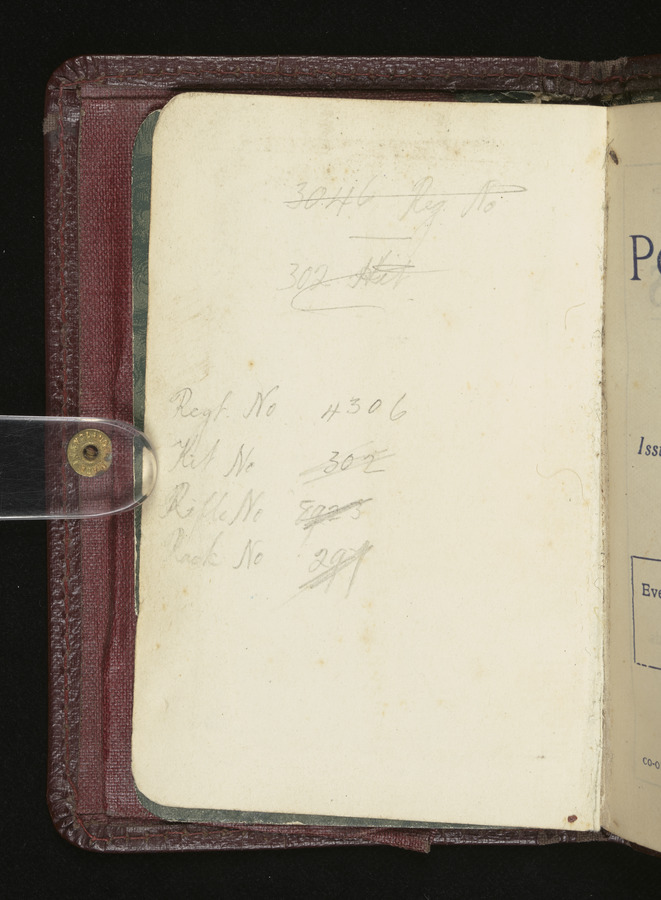 3046 Reg. No
302 Kit
Regt. No 4306
Kit No 302
Rifle No 8923
Pack No 297
P
Iss
Eve
co-o